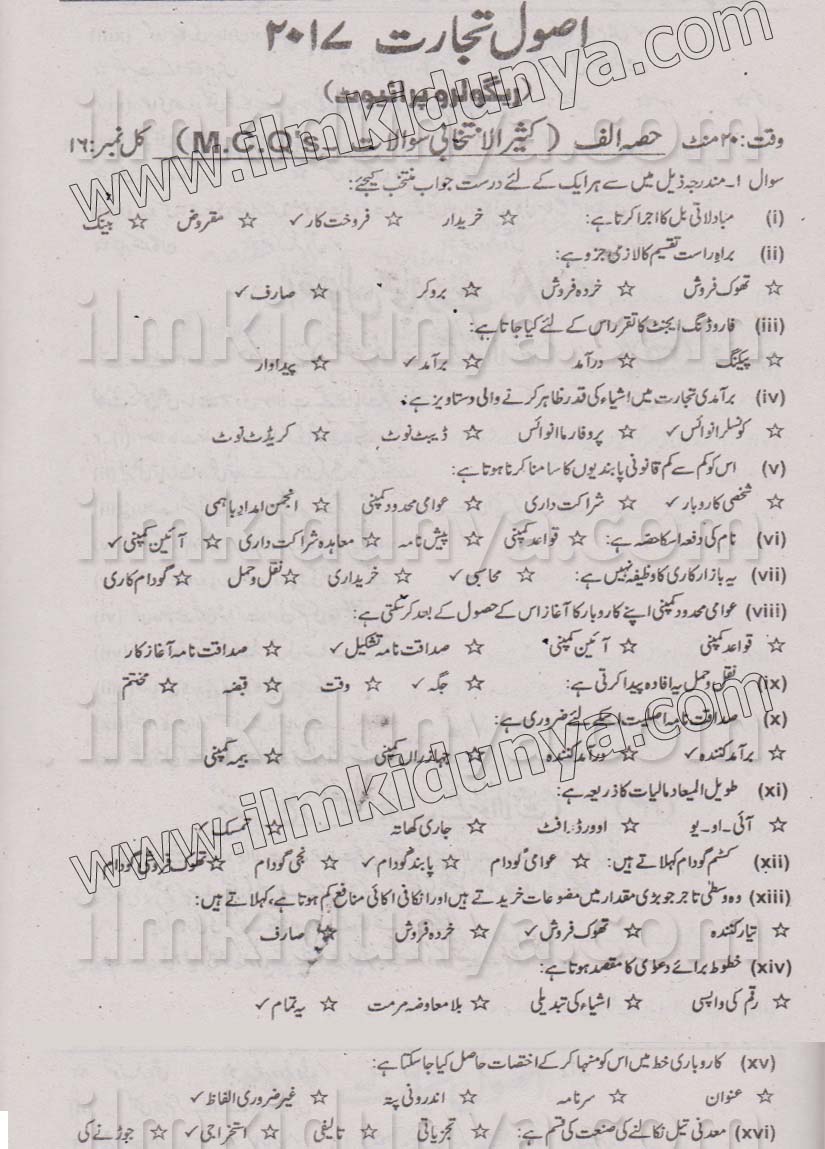 اصول تجارت ۲۰۱۷
(ریگولر و پرائیوٹ)
وقت: ۲۰ منٹ حصہ الف (کثیر الانتخابی سوالات M.C.Q's) کل نمبر: ۱۶
سوال ۱۔ مندرجہ ذیل میں سے ہر ایک کے لئے درست جواب منتخب کیجئے:
(i) مبادلاتی بل کا اجرا کرتا ہے: ☆ خریدار ☆ فروخت کار ✓ ☆ مقروض ☆ بینک
(ii) براہِ راست تقسیم کا لازمی جزو ہے:
☆ تھوک فروش ☆ خردہ فروش ☆ بروکر ☆ صارف ✓
(iii) فارورڈنگ ایجنٹ کا تقرر اس کے لئے کیا جاتا ہے:
☆ پیکنگ ☆ درآمد ☆ برآمد ✓ ☆ پیداوار
(iv) برآمدی تجارت میں اشیاء کی قدر ظاہر کرنے والی دستاویز ہے:
☆ کونسلر انوائس ✓ ☆ پروفارما انوائس ☆ ڈیبٹ نوٹ ☆ کریڈٹ نوٹ
(v) اس کو کم سے کم قانونی پابندیوں کا سامنا کرنا ہوتا ہے:
☆ شخصی کاروبار ✓ ☆ شراکت داری ☆ عوامی محدود کمپنی ☆ انجمن امداد باہمی
(vi) نام کی دفعہ اسکا حصہ ہے: ☆ قواعد کمپنی ☆ پیش نامہ ☆ معاہدہ شراکت داری ☆ آئین کمپنی ✓
(vii) یہ بازار کاری کا وظیفہ نہیں ہے: ☆ محاسبی ✓ ☆ خریداری ☆ نقل و حمل ☆ گودام کاری
(viii) عوامی محدود کمپنی اپنے کاروبار کا آغاز اس کے حصول کے بعد کر سکتی ہے:
☆ قواعد کمپنی ☆ آئین کمپنی ☆ صداقت نامہ تشکیل ✓ ☆ صداقت نامہ آغاز کار
(ix) نقل و حمل یہ افادہ پیدا کرتی ہے: ☆ جگہ ✓ ☆ وقت ☆ قبضہ ☆ مختتم
(x) صداقت نامہ اصلیت اسکے لئے ضروری ہے:
☆ برآمد کنندہ ✓ ☆ درآمد کنندہ ☆ جہازراں کمپنی ☆ بیمہ کمپنی
(xi) طویل المیعاد مالیات کا ذریعہ ہے:
☆ آئی۔او۔یو ☆ اوورڈرافٹ ☆ جاری کھاتہ ☆ تمسک ✓
(xii) کسٹم گودام کہلاتے ہیں: ☆ عوامی گودام ☆ پابند گودام ✓ ☆ نجی گودام ☆ تھوک فروشی گودام
(xiii) وہ وسطی تاجر جو بڑی مقدار میں مصنوعات خریدتے ہیں اور انکا فی اکائی منافع کم ہوتا ہے، کہلاتے ہیں:
☆ تیار کنندہ ☆ تھوک فروش ✓ ☆ خردہ فروش ☆ صارف
(xiv) خطوط برائے دعویٰ کا مقصد ہوتا ہے:
☆ رقم کی واپسی ☆ اشیاء کی تبدیلی ☆ بلا معاوضہ مرمت ☆ یہ تمام ✓
(xv) کاروباری خط میں اس کو منہا کر کے اختصات حاصل کیا جا سکتا ہے:
☆ عنوان ☆ سرنامہ ☆ اندرونی پتہ ☆ غیر ضروری الفاظ ✓
(xvi) معدنی تیل نکالنے کی صنعت کی قسم ہے: ☆ تجزیاتی ☆ تالیفی ☆ استخراجی ✓ ☆ جوڑنے کی
www.ilmkidunya.com
www.ilmkidunya.com
ilmkidunya.com
ilmkidunya.com
ilmkidunya.com
ilmkidunya.com
ilmkidunya.com
ilmkidunya.com